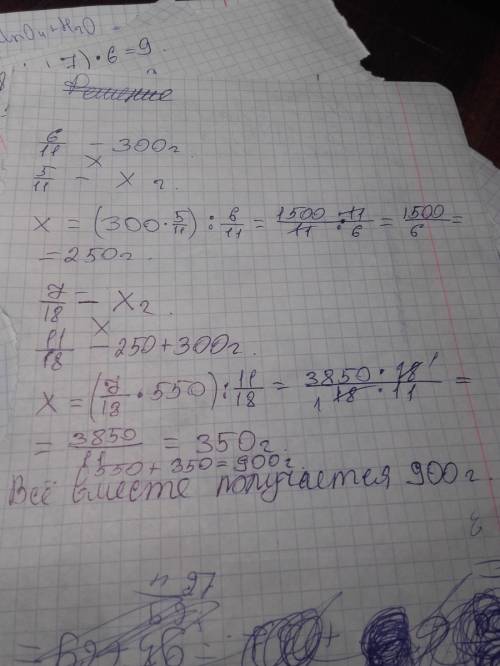 7) · 6 = 9
Решение
6/11 – 300г
X
5/11 – X г.
X = (300 · 5/11) : 6/11 = 1500 · 11 / 11 · 6 = 1500/6 =
= 250г.
7/18 – X г.
X
11/18 – 250 + 300г.
X = (7/18 · 550) : 11/18 = 3850 · 18 1 / 1 18 · 11 =
= 3850/11 = 350г.
550 + 350 = 900г.
Всё вместе получается 900г.